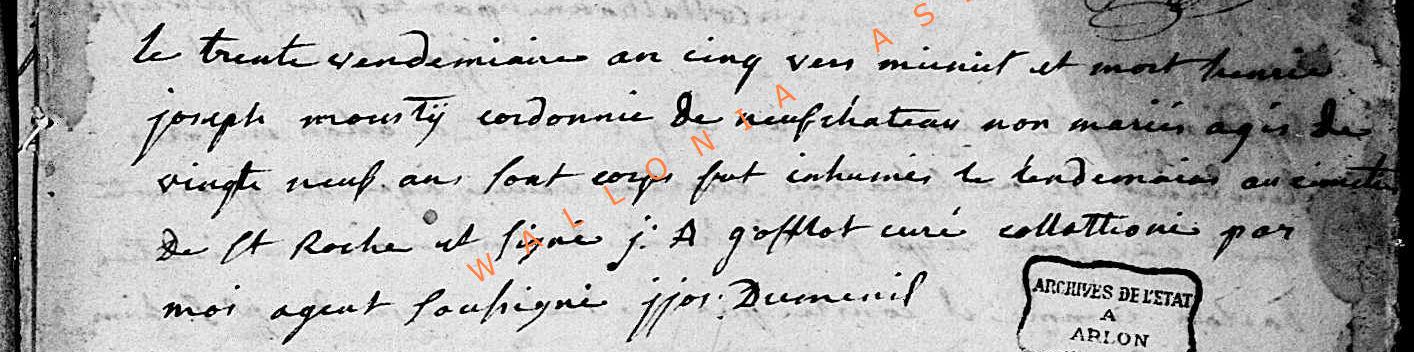 le trente vendemiaire an cinq vers minuit et mort henrie
joseph moustÿ cordonnie de neufchateau non mariés agés de
vingte neuf ans sont corps fut inhumés le lendemains au cimetie
de St Roche et signé j. A goffflot curé collattioné par
moi agent soussigné jjos: Dumenil
WALLONIA AS
ARCHIVES DE L'ETAT
A
ARLON